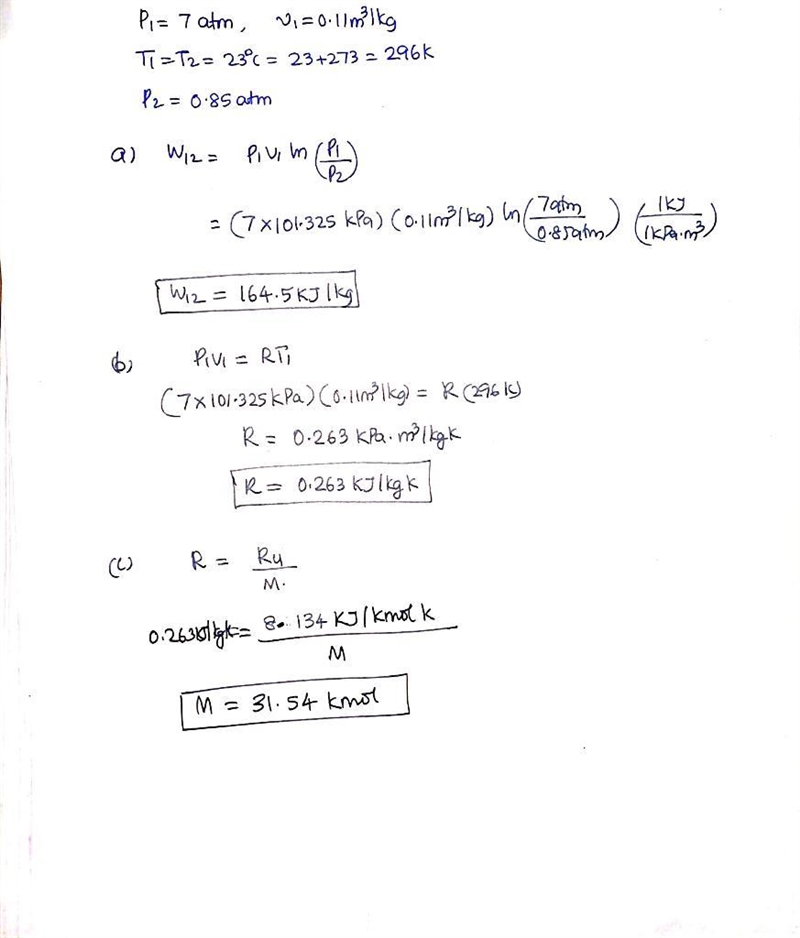 P₁ = 7 atm, v₁ = 0.11 m³/kg
T₁ = T₂ = 23°C = 23+273 = 296K
P₂ = 0.85 atm
a) W₁₂ = P₁V₁ ln (P₁/P₂)
= (7×101.325 kPa) (0.11m³/kg) ln (7atm/0.85atm) (1KJ/1KPa.m³)
W₁₂ = 164.5 KJ/kg
(b) P₁V₁ = RT₁
(7×101.325 kPa) (0.11m³/kg) = R (296 K)
R = 0.263 KPa.m³/kgK
R = 0.263 KJ/kgK
(c) R = Ru/M.
0.263KJ/kgK = 8.134 KJ/Kmol K/M
M = 31.54 kmol